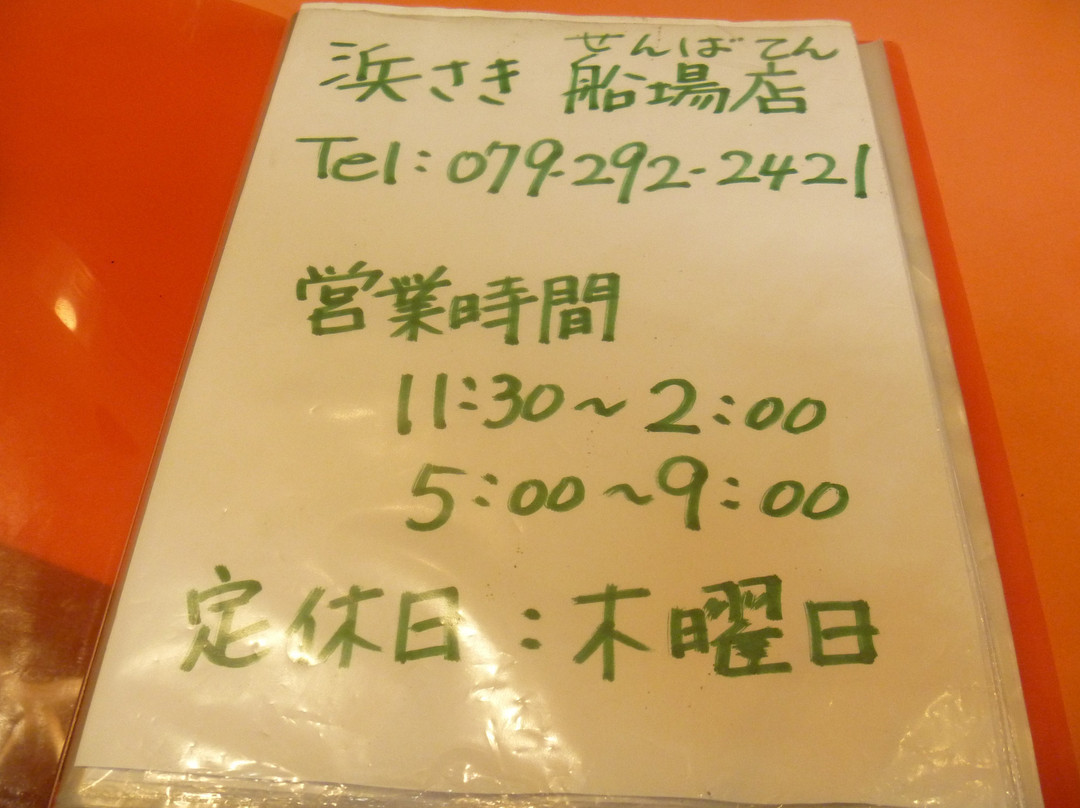 せんばてん
浜さき 船場店
Tel:079-292-2421
営業時間
11:30～2:00
5:00～9:00
定休日:木曜日